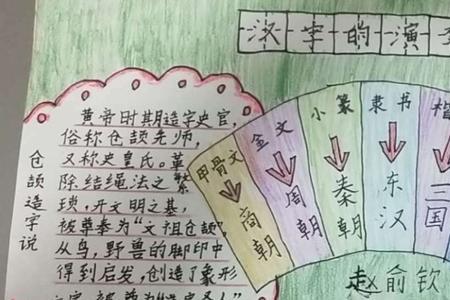 汉字的演
仓颉造字说
黄帝时期造字史官,
俗称仓颉先师,
又称史皇氏。革
除结绳法之繁
琐,开文明之基,
被尊奉为“文祖仓颉”
从鸟,野兽的脚印中
得到启发,创造了象形
甲骨文
商朝
金文
周朝
小篆
秦朝
隶书
东汉
楷
三国
赵俞钦